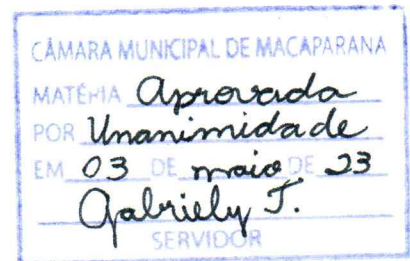 CÂMARA MUNICIPAL DE MACAPARANA
MATÉRIA Aprovada
POR Unanimidade
EM 03 DE maio DE 23
Gabriely T.
SERVIDOR